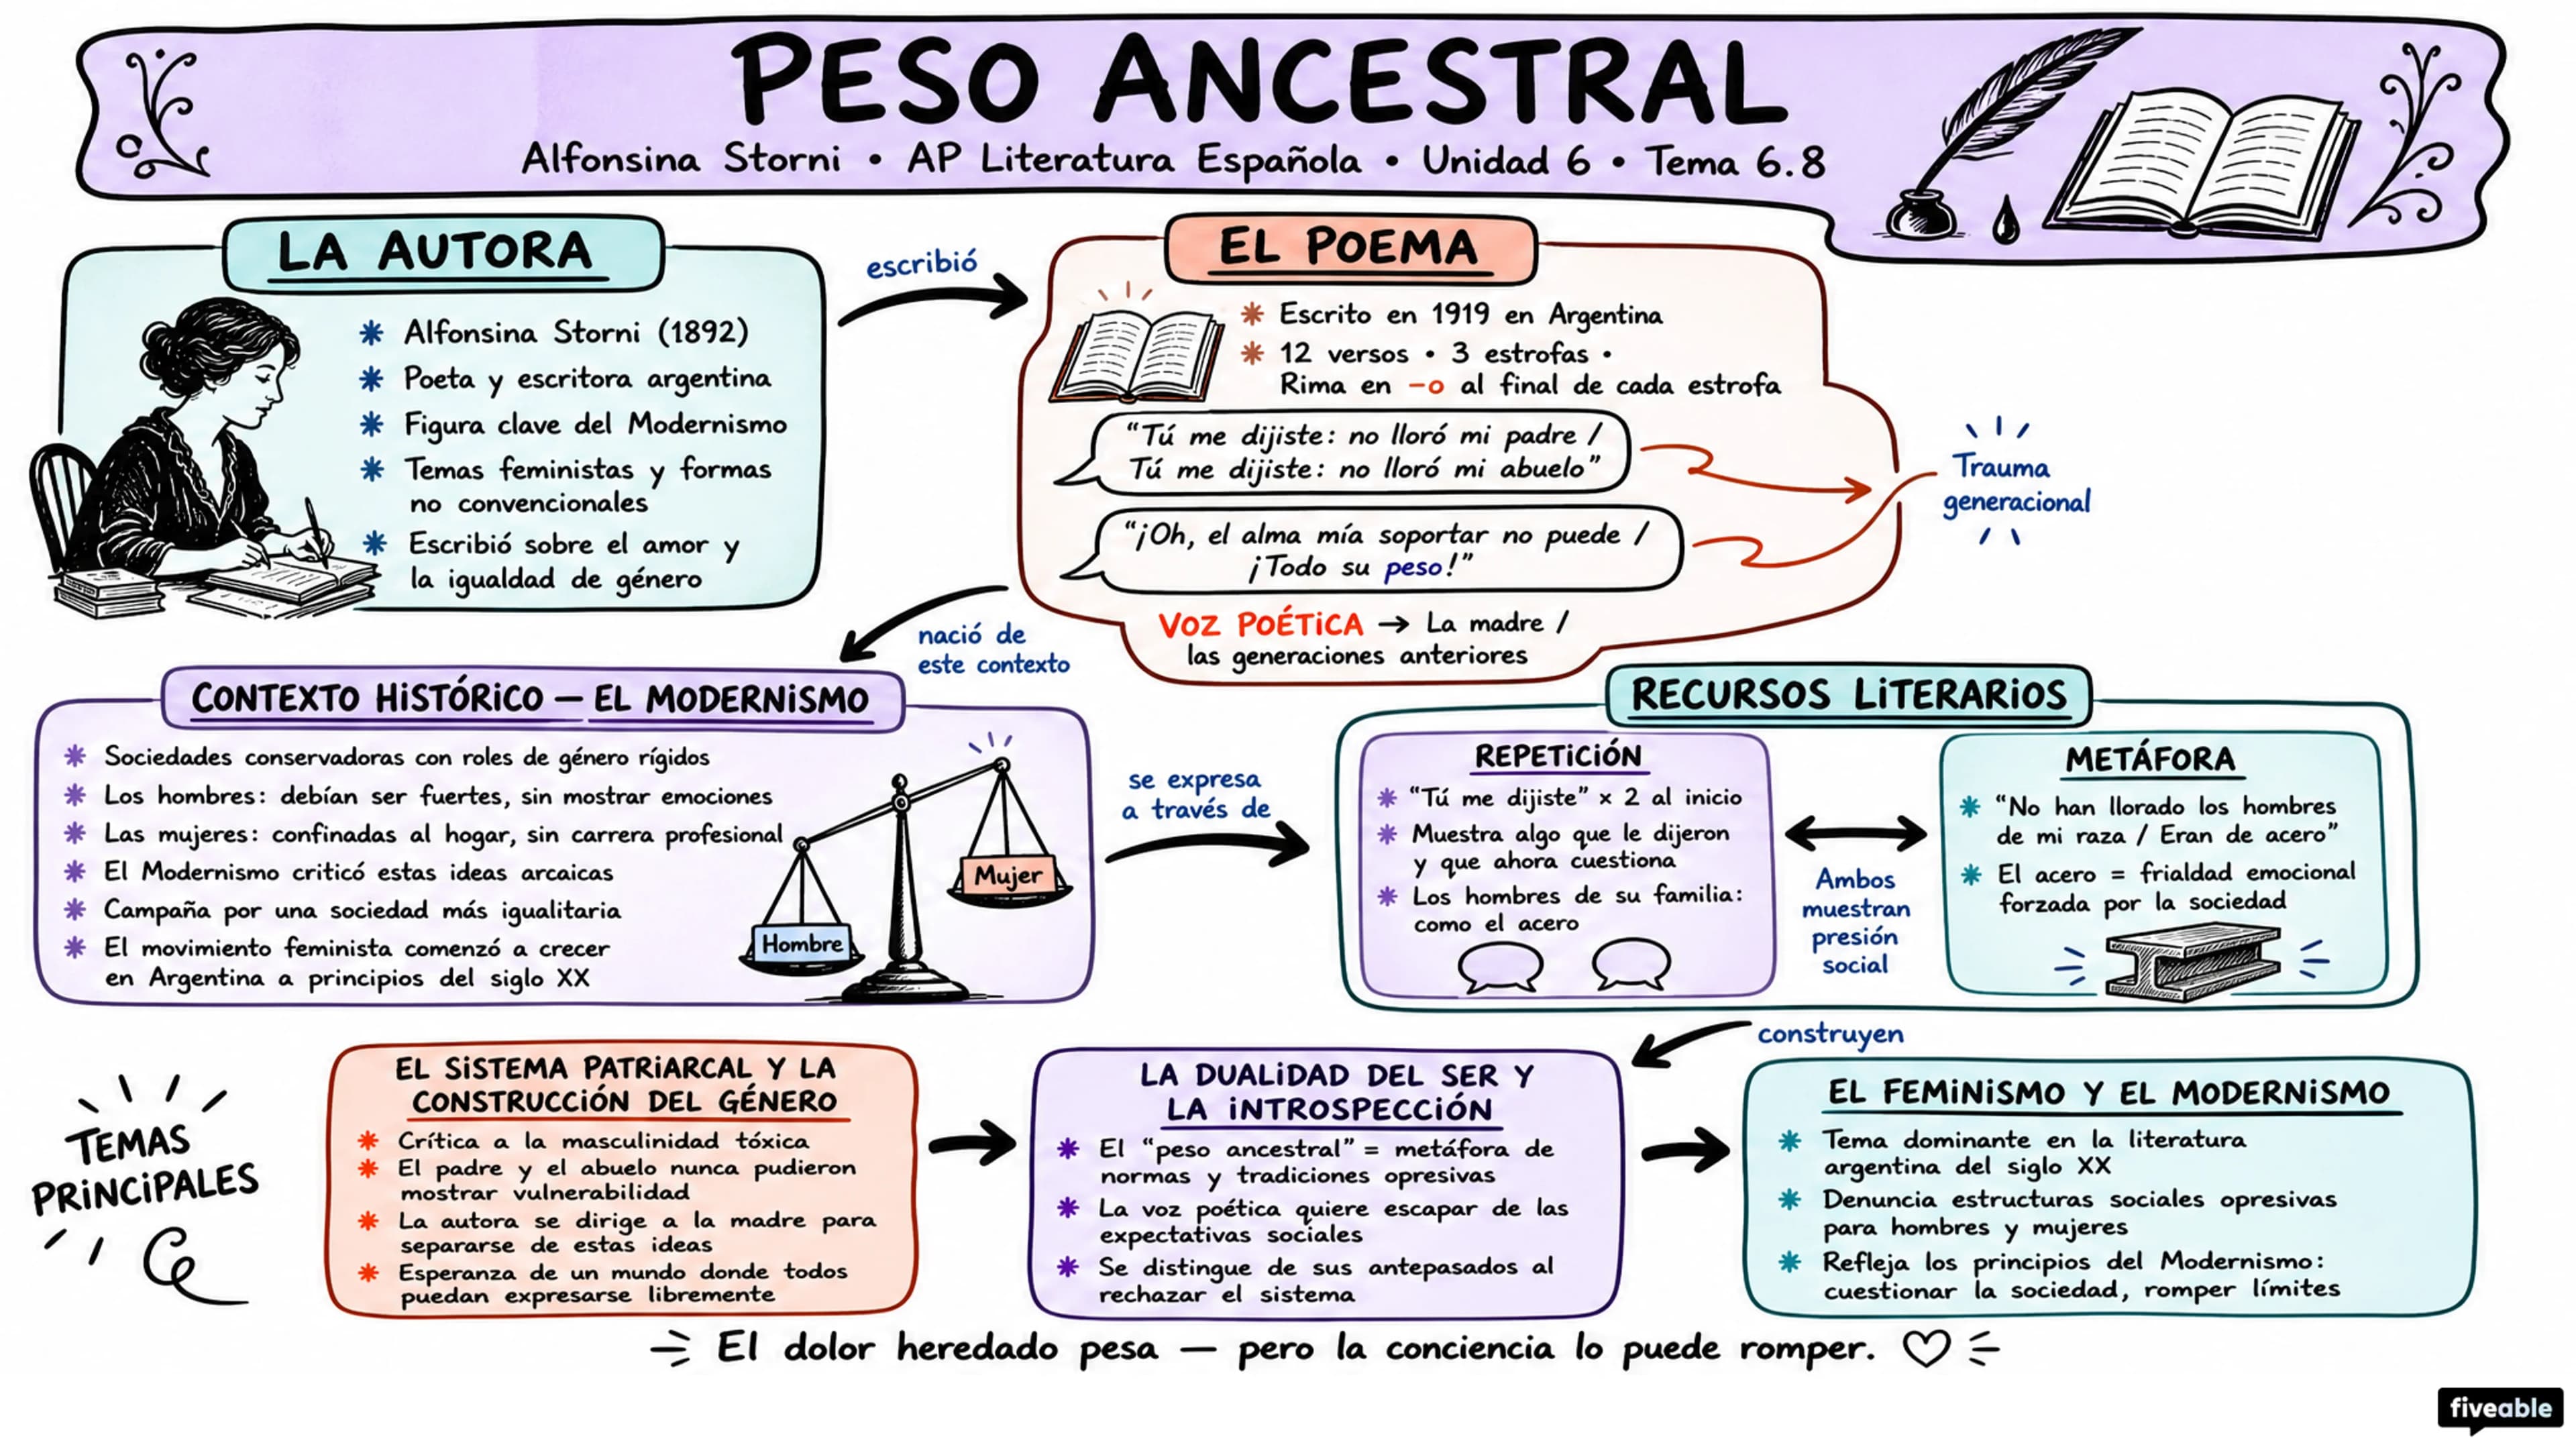 PESO ANCESTRAL
Alfonsina Storni • AP Literatura Española • Unidad 6 • Tema 6.8
LA AUTORA
* Alfonsina Storni (1892)
* Poeta y escritora argentina
* Figura clave del Modernismo
* Temas feministas y formas
no convencionales
* Escribió sobre el amor y
la igualdad de género
escribió
EL POEMA
* Escrito en 1919 en Argentina
* 12 versos • 3 estrofas •
Rima en -o al final de cada estrofa
“Tú me dijiste: no lloró mi padre /
Tú me dijiste: no lloró mi abuelo”
“¡Oh, el alma mía soportar no puede /
¡Todo su peso!”
Trauma
generacional
VOZ POÉTICA → La madre /
las generaciones anteriores
nació de
este contexto
CONTEXTO HISTÓRICO — EL MODERNISMO
* Sociedades conservadoras con roles de género rígidos
* Los hombres: debían ser fuertes, sin mostrar emociones
* Las mujeres: confinadas al hogar, sin carrera profesional
* El Modernismo criticó estas ideas arcaicas
* Campaña por una sociedad más igualitaria
* El movimiento feminista comenzó a crecer
en Argentina a principios del siglo XX
Hombre
Mujer
se expresa
a través de
RECURSOS LITERARIOS
REPETICIÓN
* “Tú me dijiste” × 2 al inicio
* Muestra algo que le dijeron
y que ahora cuestiona
* Los hombres de su familia:
como el acero
Ambos
muestran
presión
social
METÁFORA
* “No han llorado los hombres
de mi raza / Eran de acero”
* El acero = frialdad emocional
forzada por la sociedad
construyen
TEMAS
PRINCIPALES
EL SISTEMA PATRIARCAL Y LA
CONSTRUCCIÓN DEL GÉNERO
* Crítica a la masculinidad tóxica
* El padre y el abuelo nunca pudieron
mostrar vulnerabilidad
* La autora se dirige a la madre para
separarse de estas ideas
* Esperanza de un mundo donde todos
puedan expresarse libremente
LA DUALIDAD DEL SER Y
LA INTROSPECCIÓN
* El “peso ancestral” = metáfora de
normas y tradiciones opresivas
* La voz poética quiere escapar de las
expectativas sociales
* Se distingue de sus antepasados al
rechazar el sistema
EL FEMINISMO Y EL MODERNISMO
* Tema dominante en la literatura
argentina del siglo XX
* Denuncia estructuras sociales opresivas
para hombres y mujeres
* Refleja los principios del Modernismo:
cuestionar la sociedad, romper límites
El dolor heredado pesa — pero la conciencia lo puede romper. ♡
fiveable